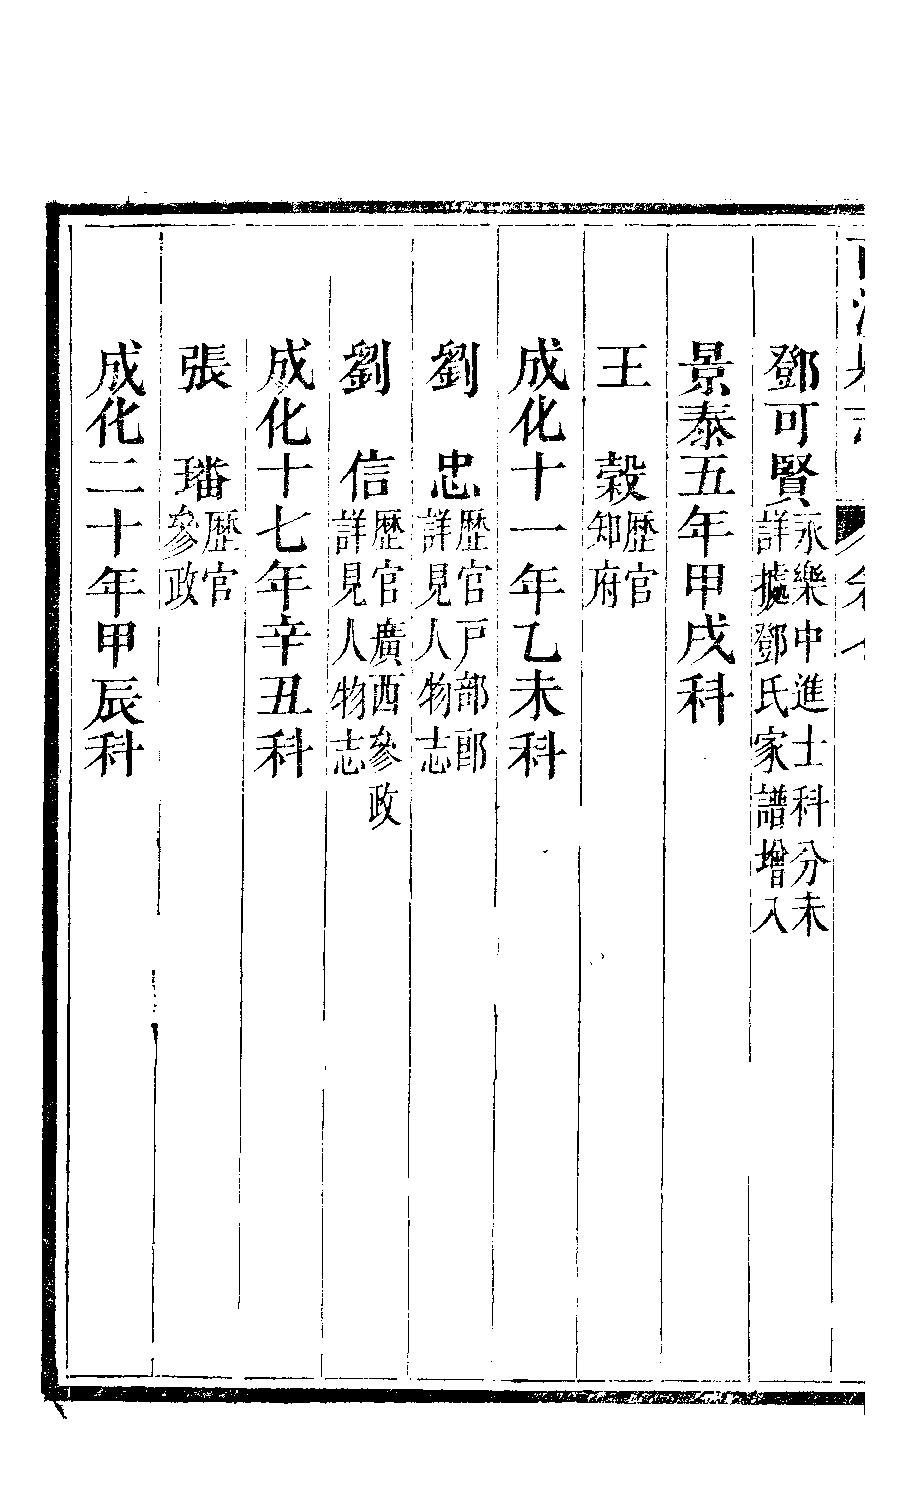 鄧可賢永樂中進士科分未詳據鄧氏家譜增入
景泰五年甲戌科
王 榖歷官知府
成化十一年乙未科
劉 忠歷官戸部郎詳見人物志
劉 信歷官廣西參政詳見人物志
成化十七年辛丑科
張 璠歷官參政
成化二十年甲辰科